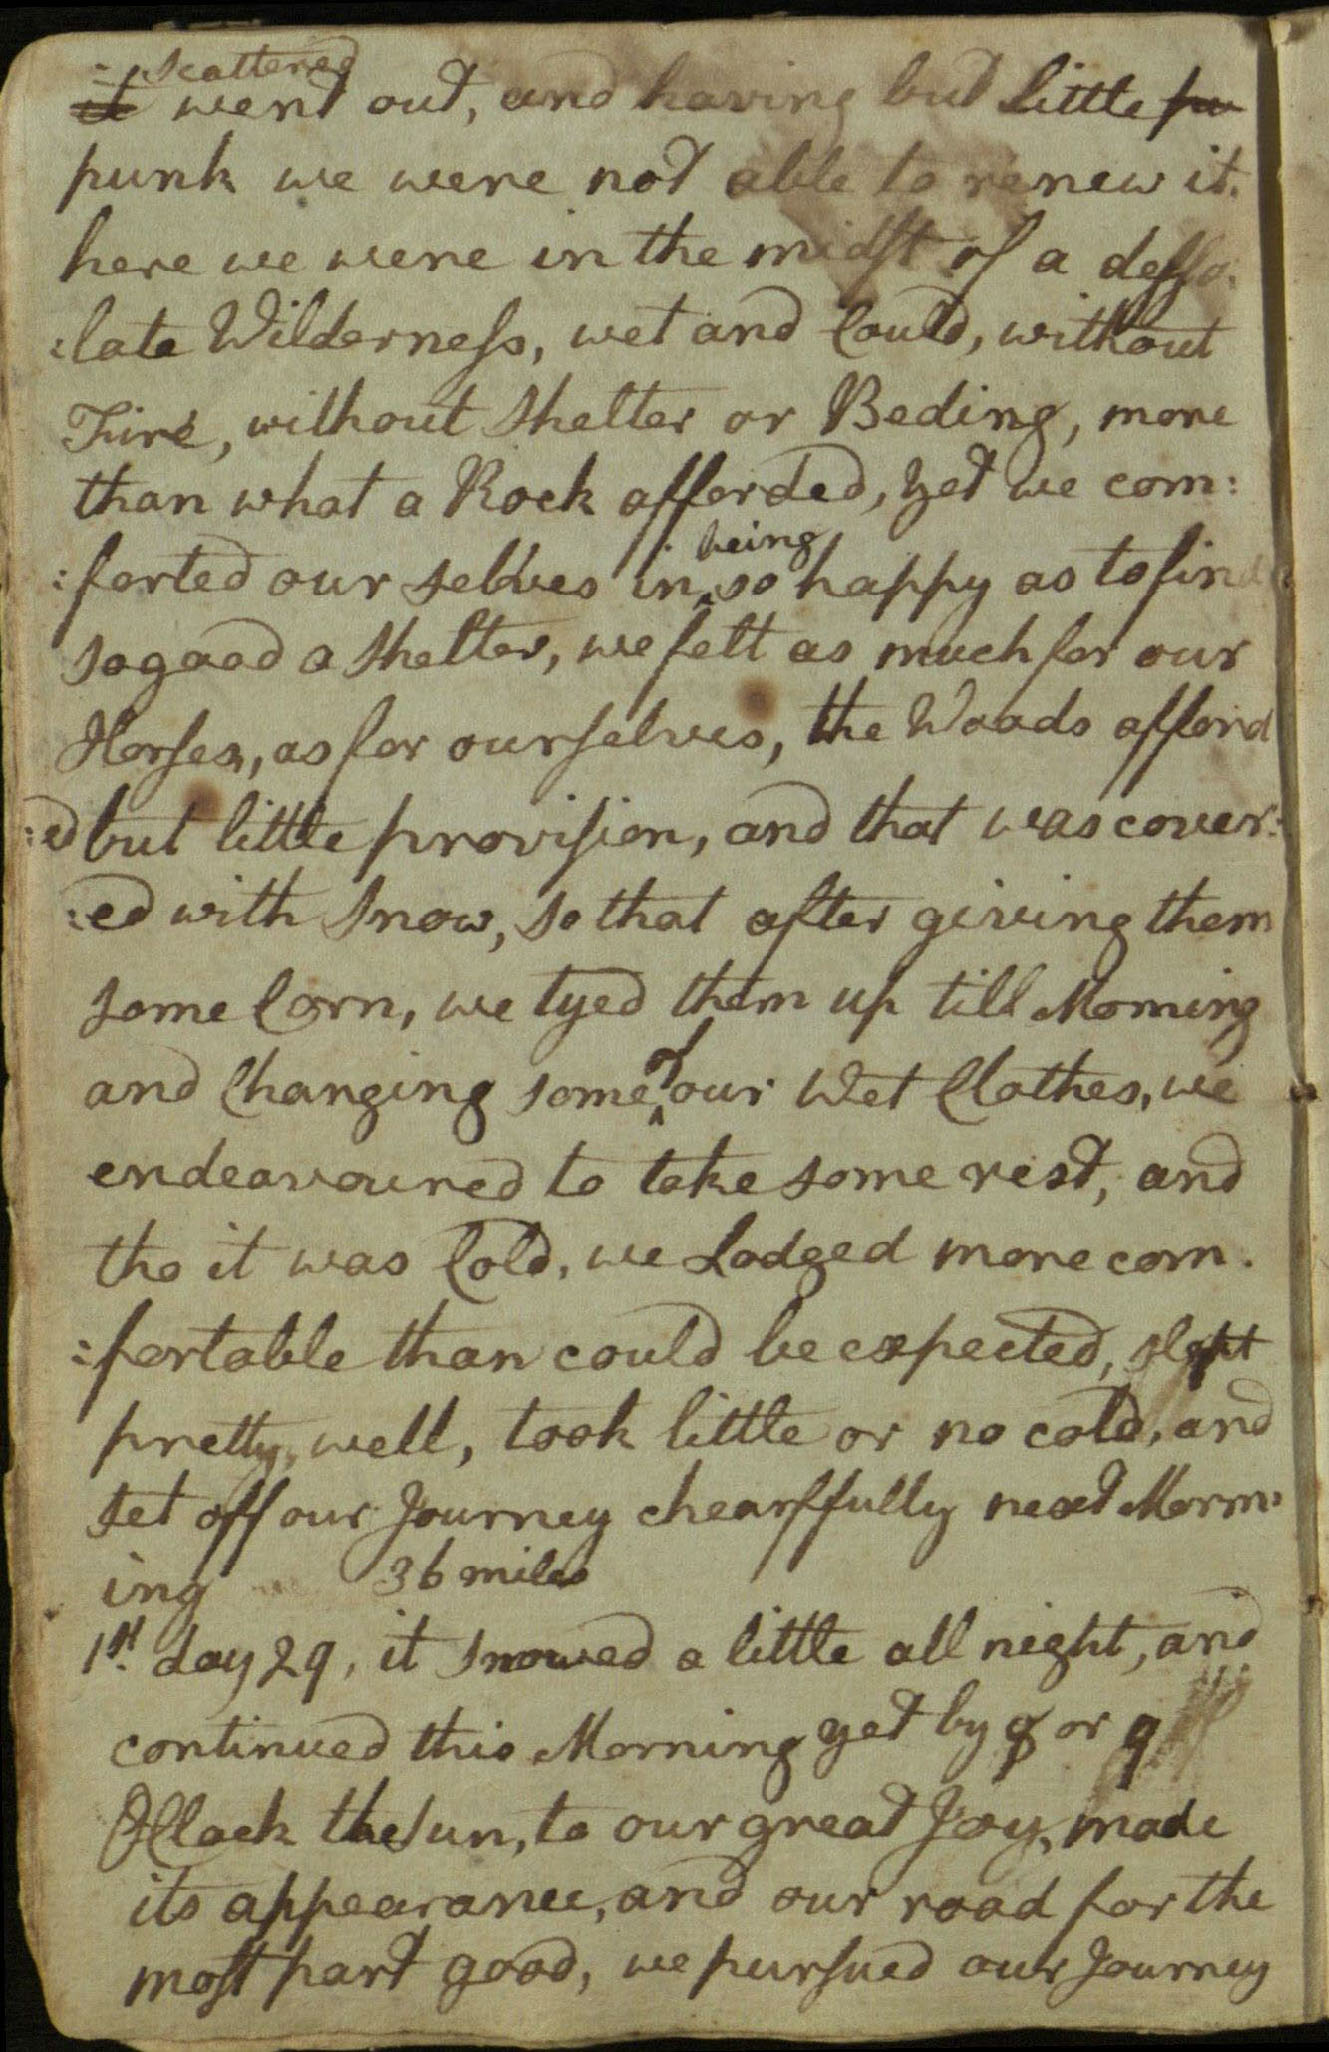 : scattered
it went out, and having but little pu
punk we were not able to renew it.
here we were in the midst of a desso:
:late Wilderness, wet and Could, without
Fire, without Shelter or Beding, more
than what a Rock afforded, yet we com:
being
:forted our selves in so happy as to find
so good a Shelter, we felt as much for our
Horses, as for ourselves, the Woods afford
:ed but little provision, and that was cover:
:ed with Snow, so that after giving them
some Corn, we tyed them up till Morning
of
and Changing some our Wet Clothes, we
endeavoured to take some rest, and
tho it was Cold, we Lodged more com.
:fortable than could be expected, slept
pretty well, took little or no cold, and
set off our Journey chearffully next Morn:
ing 36 miles
1st. day 29, it snowed a little all night, and
continued this Morning yet by 8 or 9
OClock the Sun, to our great Joy, made
its appearance, and our road for the
most part good, we pursued our Journey